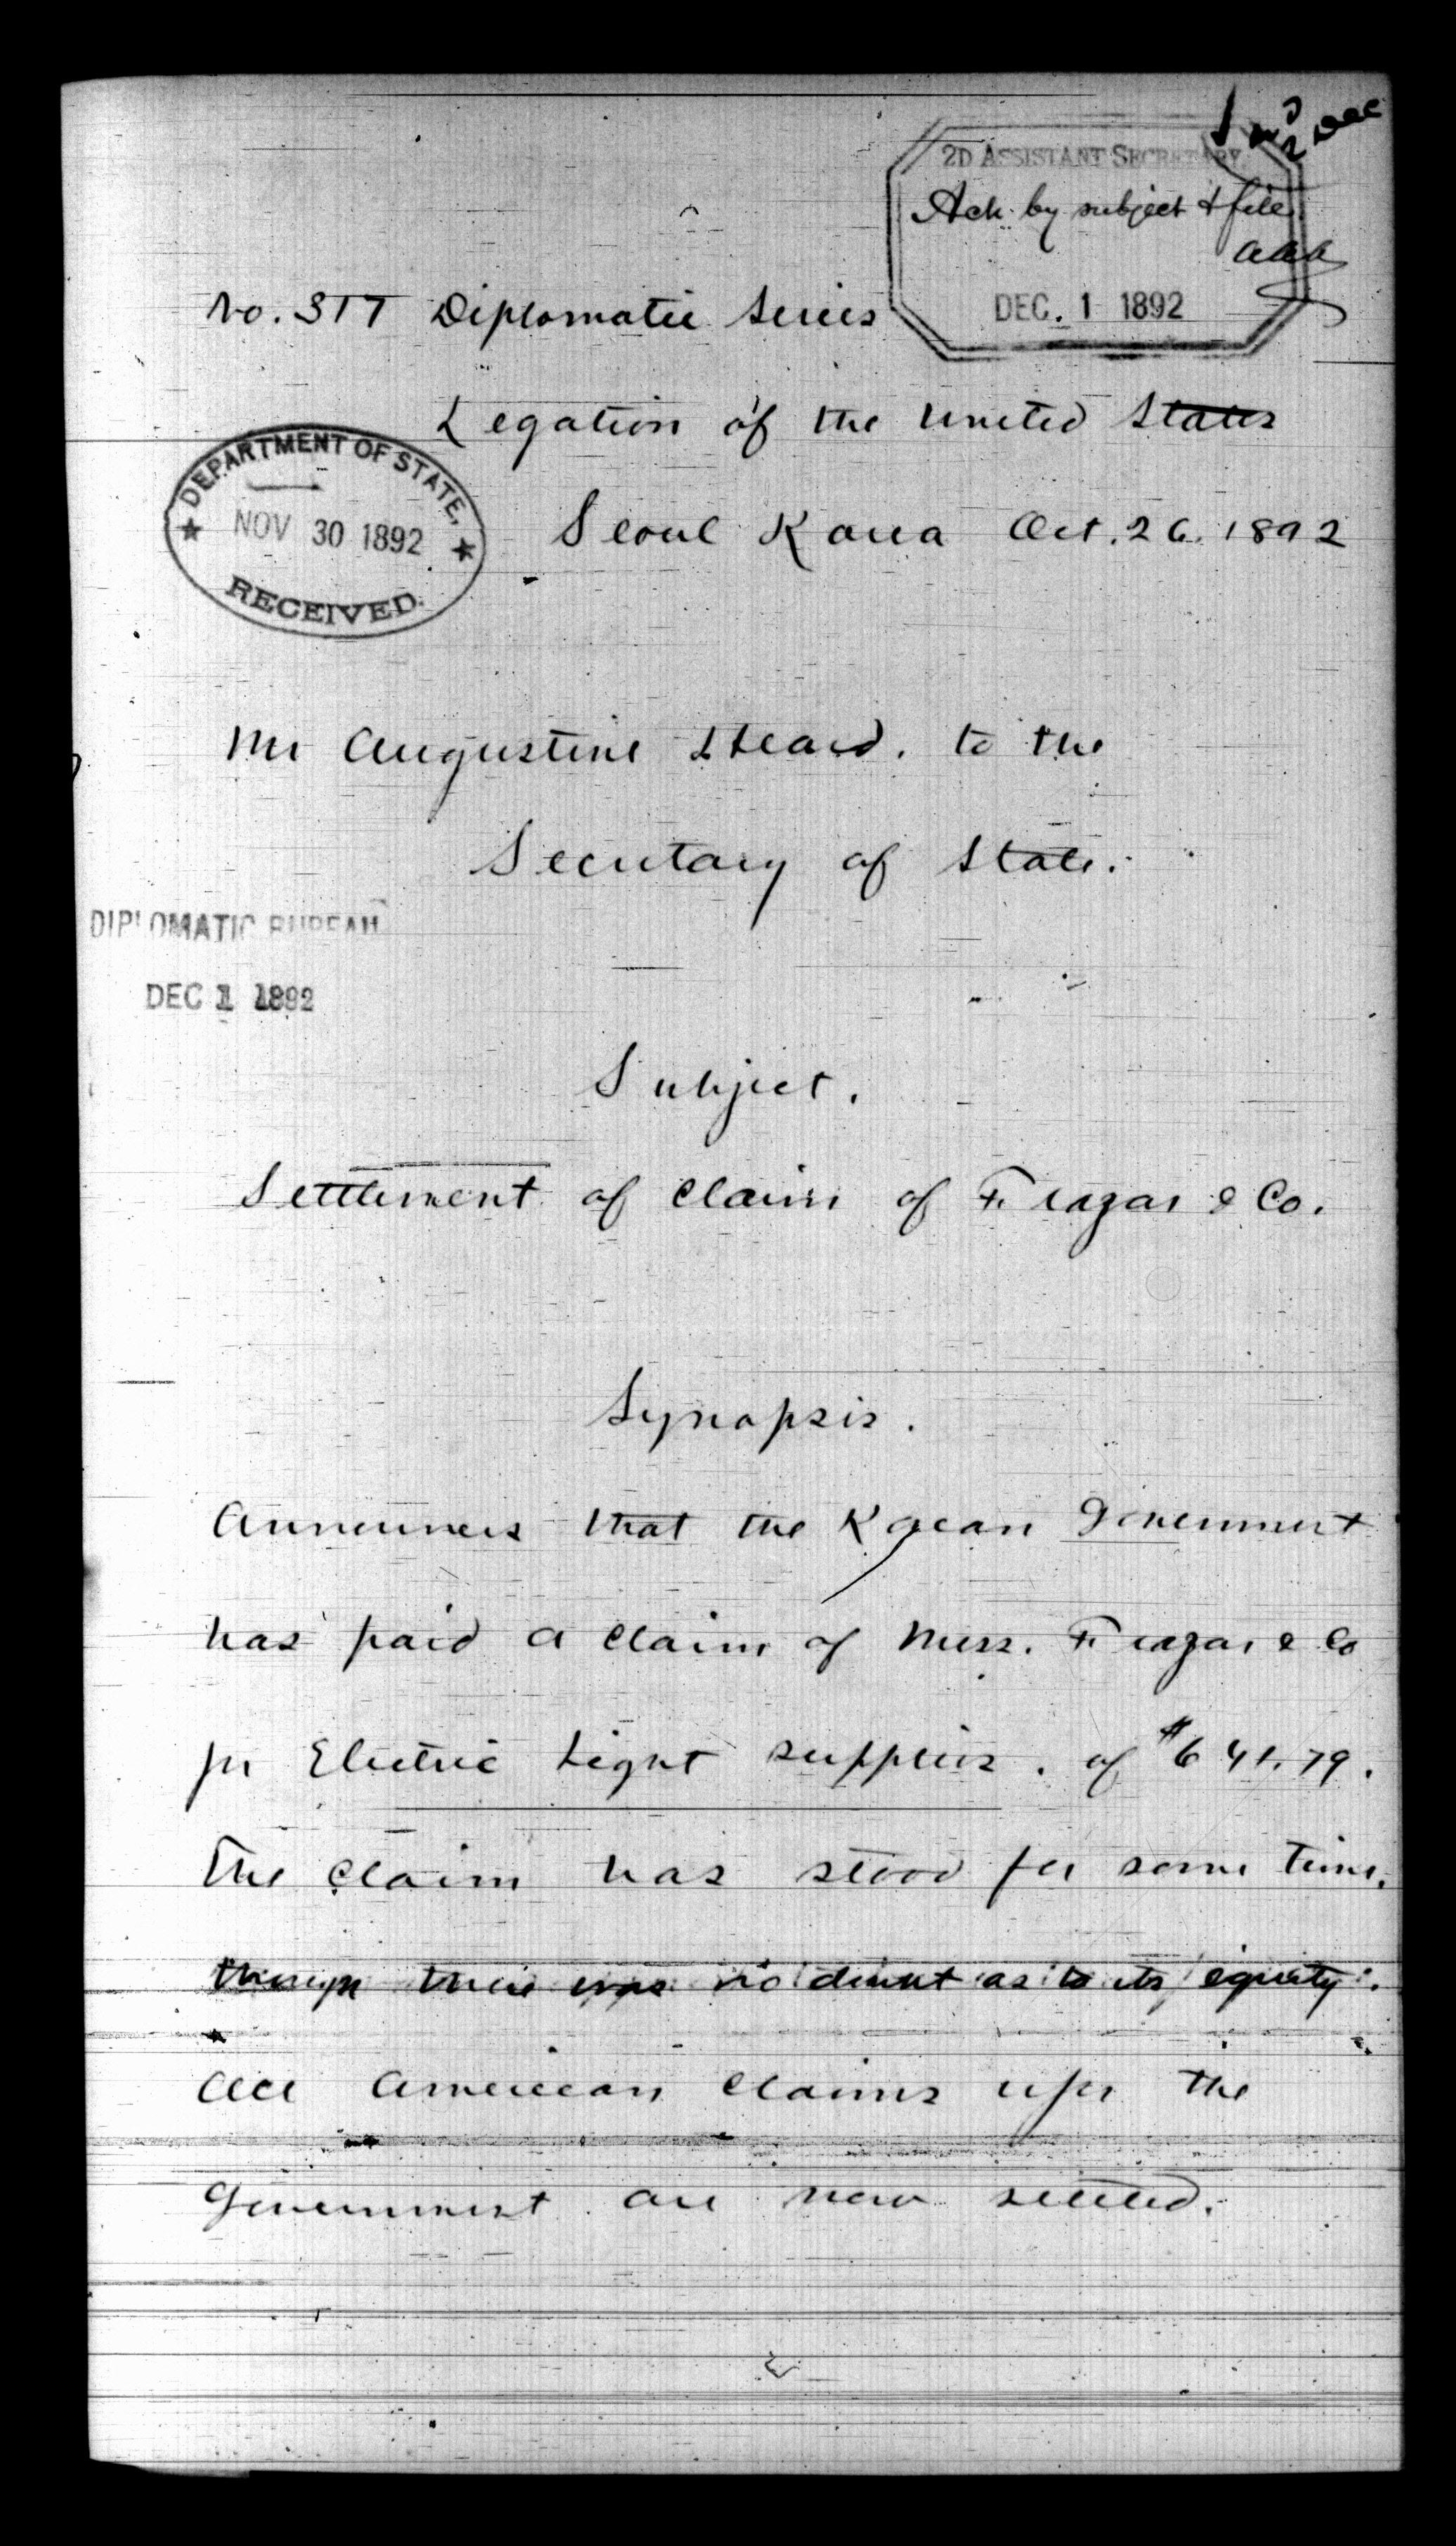 2 Dec
2D ASSISTANT SECRETARY
Ack. by subject & file
AAA
DEC. 1 1892
No. 317 Diplomatic Series
Legation of the United States
DEPARTMENT OF STATE,
NOV 30 1892
RECEIVED.
Seoul Korea Oct. 26. 1892
Mr Augustine Heard. to the
Secretary of State.
DIPLOMATIC BUREAU
DEC 1 1892
Subject.
Settlement of Claim of Frazar & Co.
Synopsis.
Announces that the Korean Government
has paid a claim of Mess. Frazar & Co
for Electric Light supplies. of $641.79.
The claim has stood for some time.
though there was no doubt as to its equity.
All American claims upon the
Government are now settled.